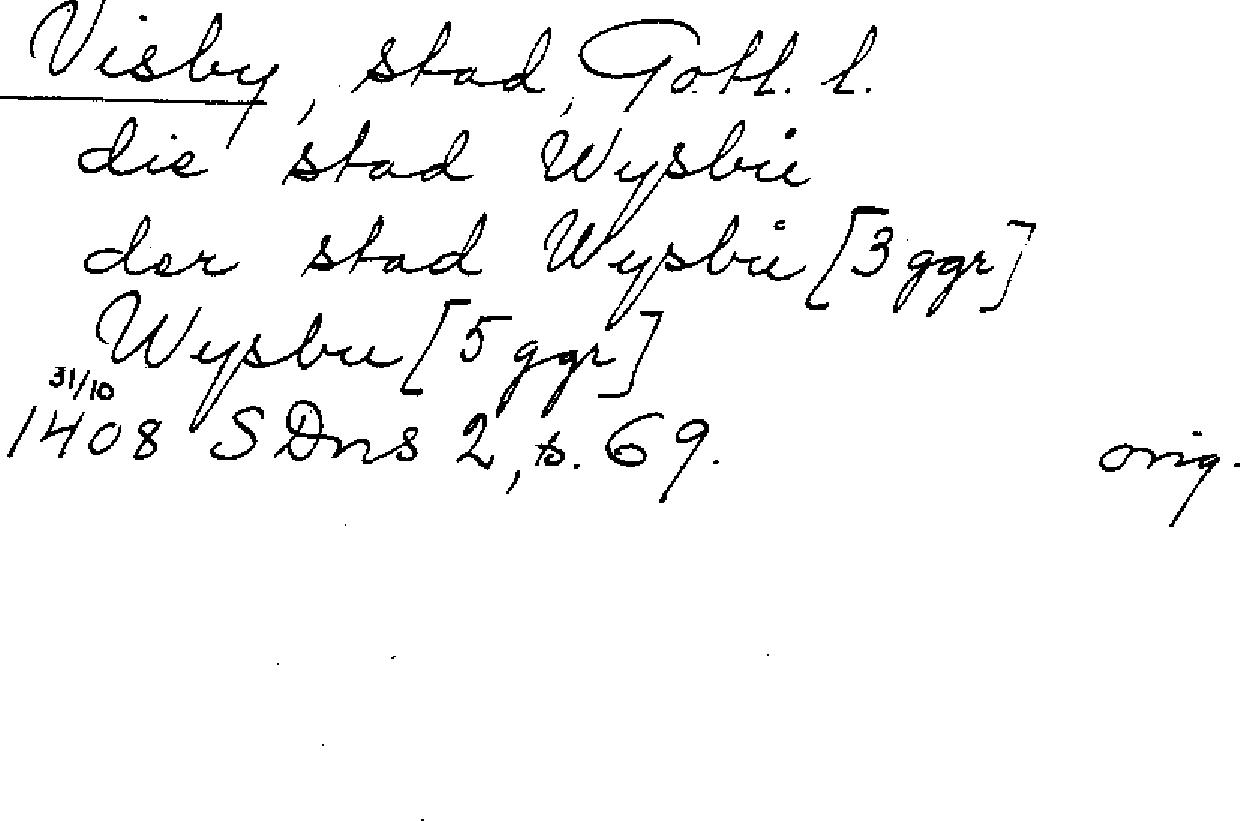 Visby, stad, Gotl. l.
die stad Wysbu̇
der stad Wysbu̇ [3 ggr]
Wysbu [5 ggr]
31/10
1408 SDns 2, s. 69. orig.